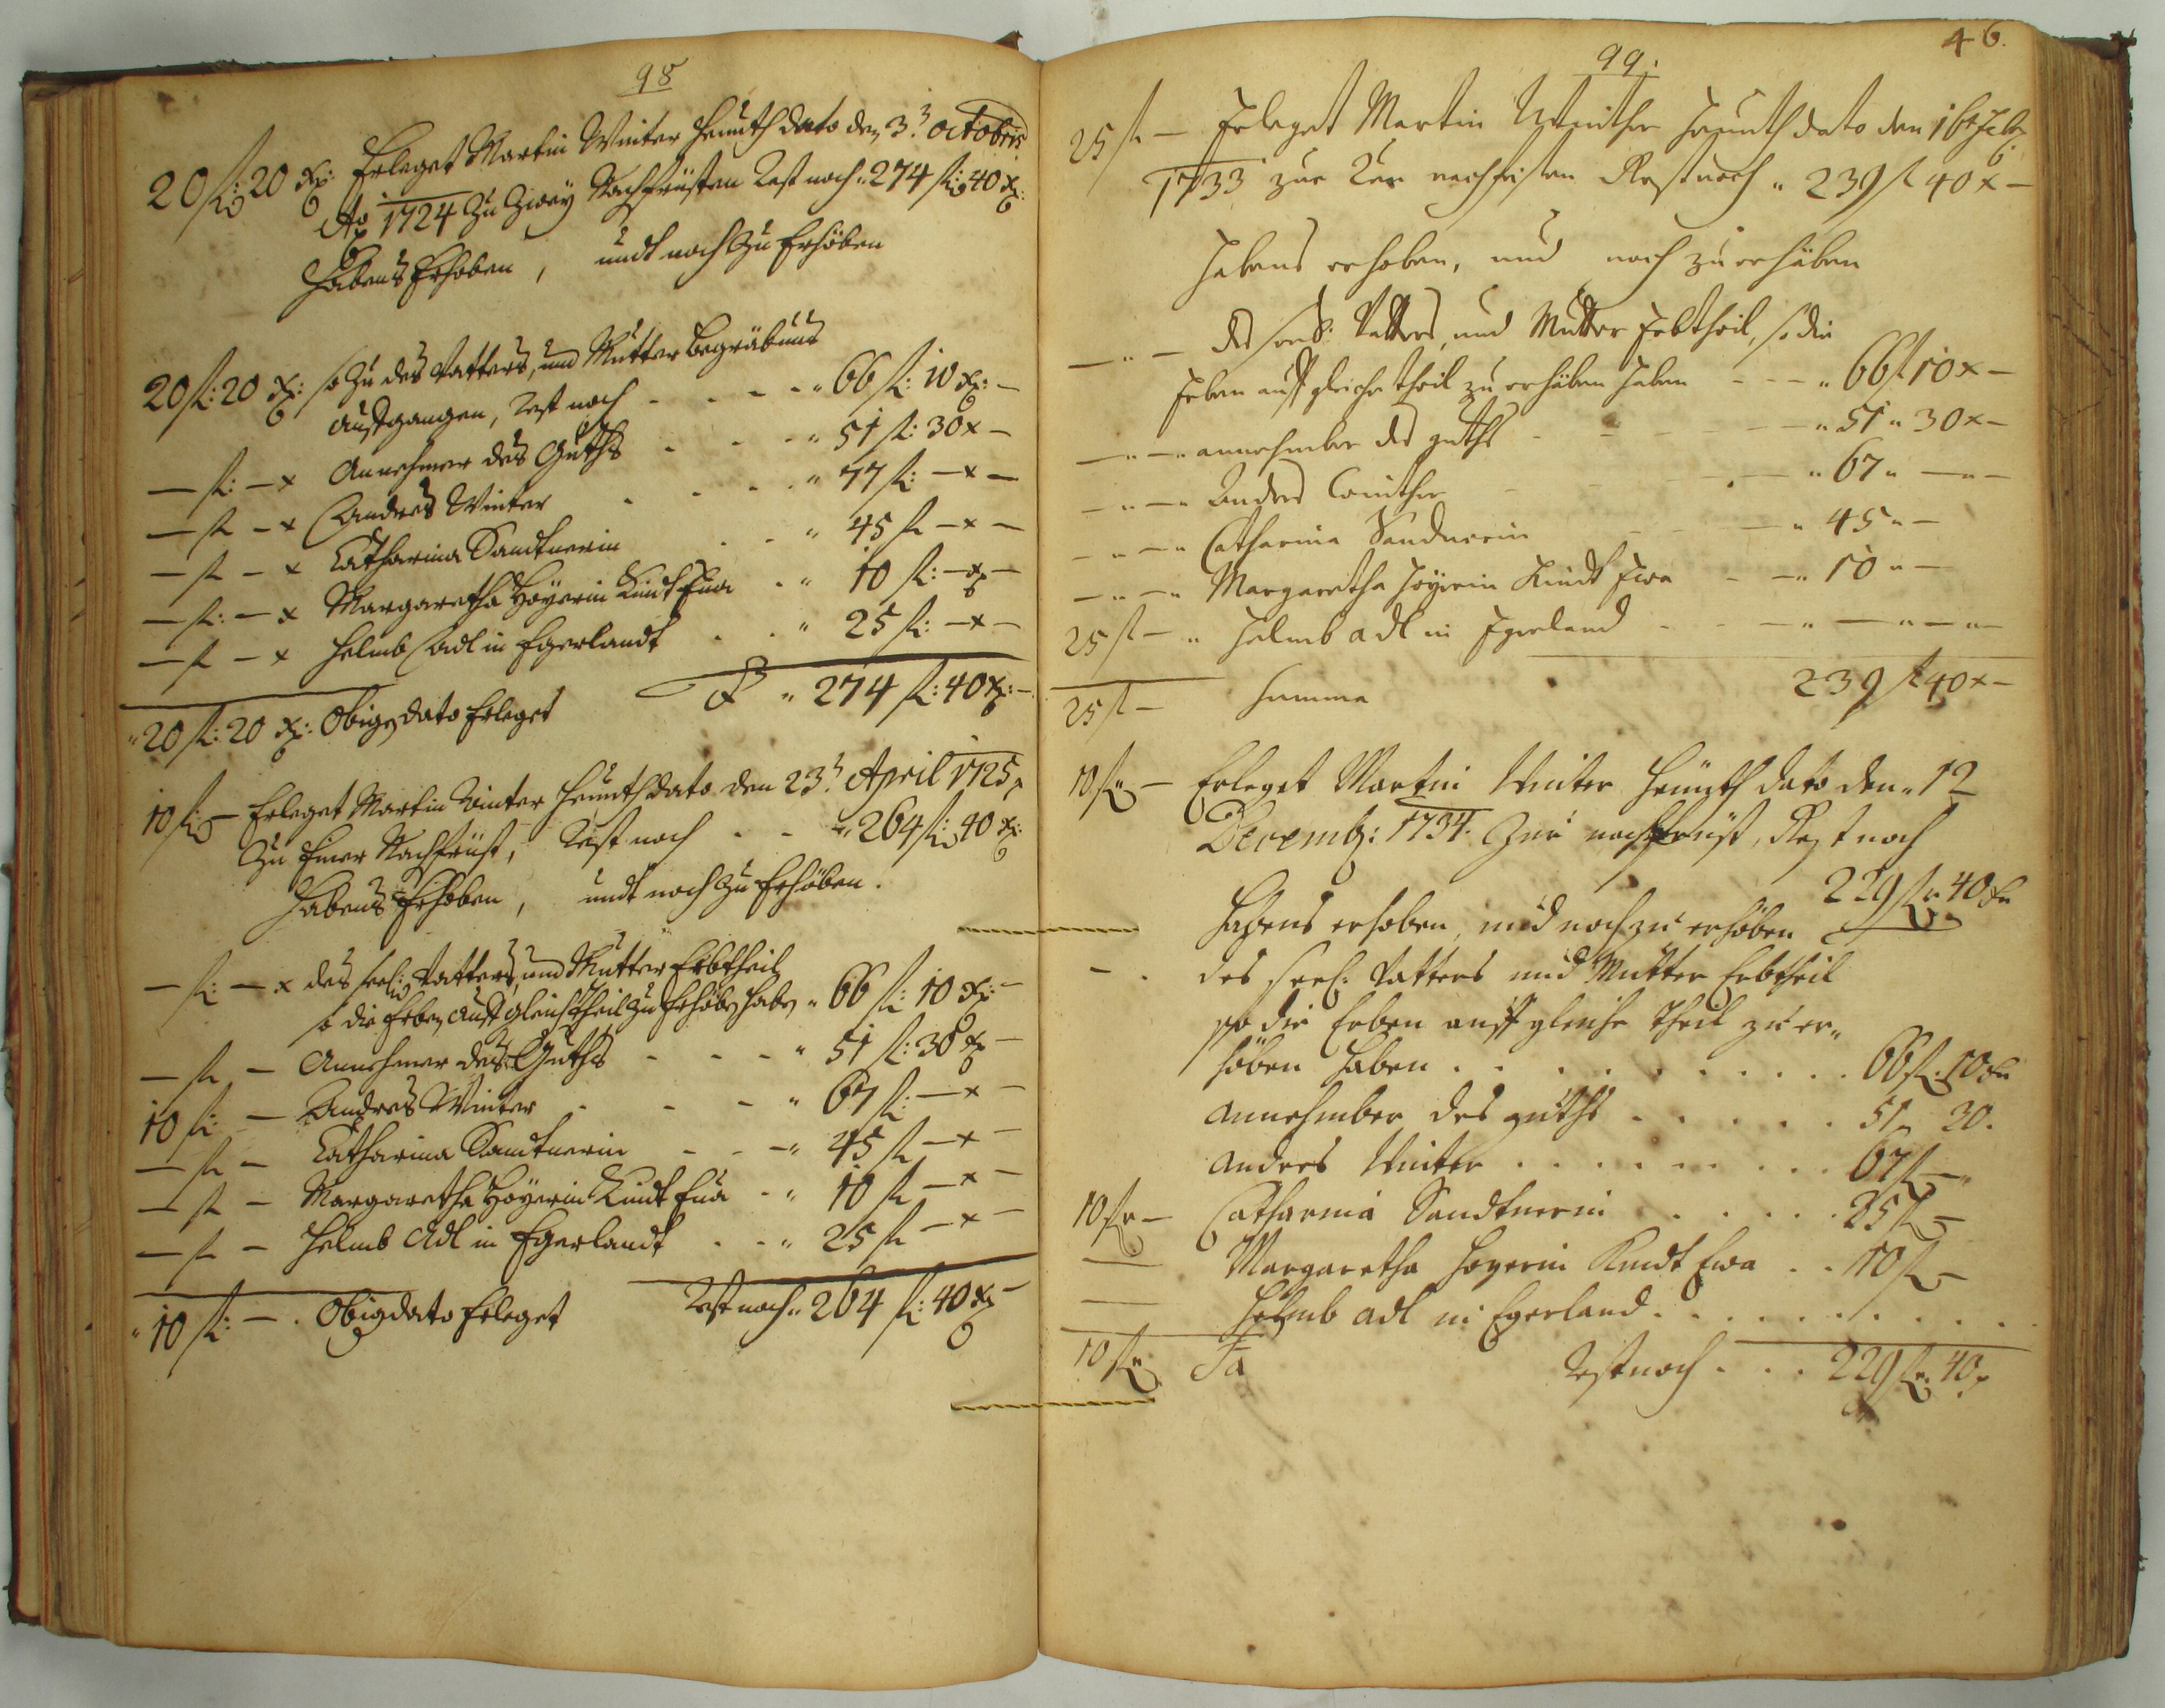 98
20 fl: 20 x: Erleget Martin Winter Heunth dato den 3t. Octobris
Ao 1724 Zu Zweÿ Nachfrüsten Rest noch " 274 fl: 40 x:
Habens Erhoben, undt noch zu Erhöben
20 fl: 20 x: so zu des Vatters, und Mutter Begräbnus
außgangen, Rest noch - - - " 66 fl: 10 x: -
— fl: — x Annehmer des Guths - - - " 51 fl: 30 x -
— fl — x Andres Winter - - - " 77 fl: — x —
— fl — x Catharina Sandtnerin - - " 45 fl — x —
— fl: — x Margaretha Hoÿerin Kindt Eua - " 10 fl: — x —
— fl — x Helmb Adl in Egerlandt - - " 25 fl: — x —
" 20 fl: 20 x: Obig dato Erleget " 274 fl: 40 x: -
10 fl: — Erleget Martin Winter Heunth dato den 23t. April 1725
Zu Einer Nachfrüst, Rest noch - - " 264 fl: 40 x:
Habens Erhoben, undt noch zu Erhöben.
— fl: — x des seel: Vatters, und Mutter Erbtheil
so die Erben auff gleich theil zu Erhöben haben " 66 fl: 10 x: -
— fl — Annehmer des Guths - - - " 51 fl: 30 x -
10 fl: — Andres Winter - - - " 67 fl: — x -
— fl — Catharina Sandtnerin - - - " 45 fl — x -
— fl — Margaretha Hoÿerin Kindt Eua - " 10 fl — x -
— fl — Helmb Adl in Egerlandt - - " 25 fl — x -
" 10 fl: — . Obig dato Erleget Rest noch " 264 fl: 40 x -
99.
46.
25 fl — Erleget Martin Winther Heunth dato den 16t
1733 zur nachfristen Rest noch " 239 fl 40 x -
Habens erhoben, und noch zu erhäben
— " — des seel: Vatters, und Mutter Erbtheil, so die
Erben auff gleiche theil zu erhäben haben - - - " 66 fl 10 x -
— " — " annehmber des guths - - - " 51 " 30 x -
— " — " Andres Winther - - - " 67 " — " -
— " — " Catharina Sandnerin - - " 45 " -
— " — " Margaretha Hoÿerin Kindt Ewa - - " 10 " -
25 fl — " Helmb adl in Egerland - - - " — " — " -
25 fl — Summa 239 fl 40 x -
10 fl — Erleget Martin Winter Heunth dato den " 12
Decemb: 1734. Zur nachfrüst, Rest noch
229 fl " 40 x
Habens erhoben, und noch zu erhöben
- . des seel: Vatters und Mutter Erbtheil
so die Erben auff gleiche theil zu er"
höben haben . . . . . . . . 66 fl. 10 x
Annehmber des guths . . . . . 51 " 30.
Andres Winter . . . . . . . 67 fl —
10 fl — Catharina Sandtnerin . . . . . 35 fl —
— Margaretha Hoyerin Kindt Ewa . . 10 fl —
— Helmb adl in Egerland . . . . . . . .
10 fl. Sa Rest noch . . . 229 fl. 40 x